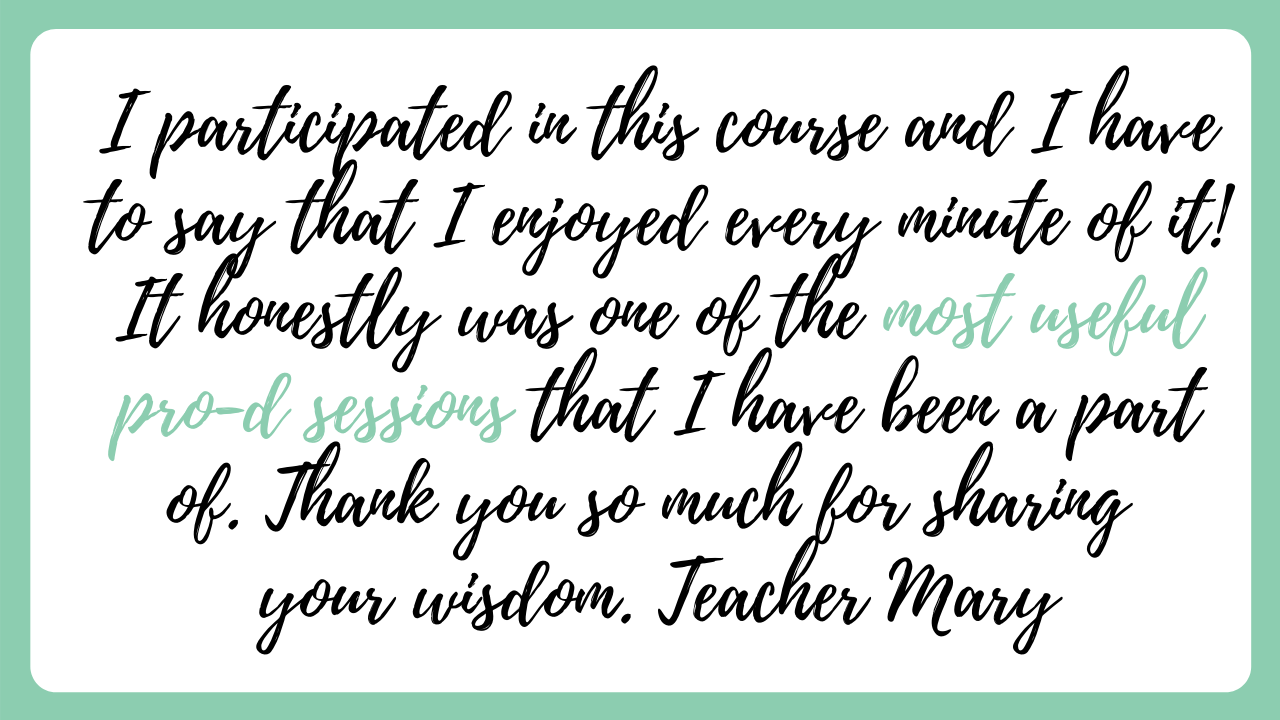 I participated in this course and I have
to say that I enjoyed every minute of it!
It honestly was one of the most useful
pro-d sessions that I have been a part
of. Thank you so much for sharing
your wisdom. Teacher Mary